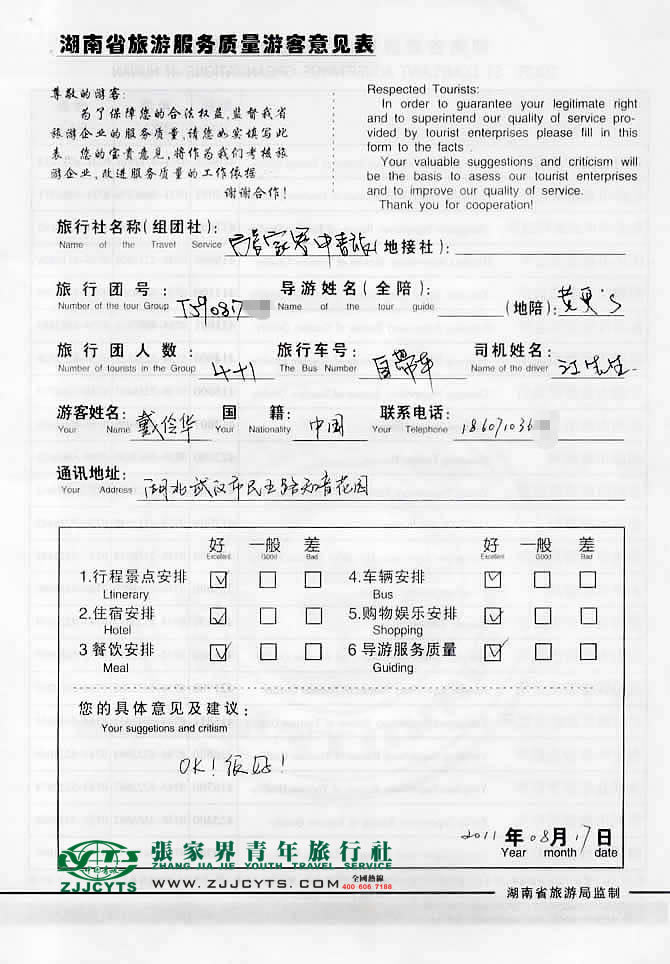 湖南省旅游服务质量游客意见表
尊敬的游客:
为了保障您的合法权益,监督我省
旅游企业的服务质量,请您如实填写此
表. 您的宝贵意见,将作为我们考核旅
游企业,改进服务质量的工作依据.
谢谢合作!
Respected Tourists:
In order to guarantee your legitimate right
and to superintend our quality of service pro-
vided by tourist enterprises please fill in this
form to the facts .
Your valuable suggestions and criticism will
be the basis to asess our tourist enterprises
and to improve our quality of service.
Thank you for cooperation!
旅行社名称(组团社): 张家界中青旅(地接社):
Name of the Travel Service
旅行团号: TS9087 导游姓名(全陪): (地陪):
Number of the tour Group Name of the tour guide
旅行团人数: 4+1 旅行车号: 自带车 司机姓名: 江先生
Number of tourists in the Group The Bus Number Name of the driver
游客姓名: 戴俭华 国籍: 中国 联系电话: 186071036
Your Name Your Nationality Your Telephone
通讯地址: 湖北武汉市民主路知音花园
Your Address
好 一般 差 好 一般 差
Excellent Good Bad Excellent Good Bad
1.行程景点安排 ☑ □ □ 4.车辆安排 ☑ □ □
Ltinerary Bus
2.住宿安排 ☑ □ □ 5.购物娱乐安排 ☑ □ □
Hotel Shopping
3 餐饮安排 ☑ □ □ 6 导游服务质量 ☑ □ □
Meal Guiding
您的具体意见及建议:
Your suggetions and critism
OK! 很好!
2011年08月17日
Year month date
張家界青年旅行社
ZHANG JIA JIE YOUTH TRAVEL SERVICE
ZJJCYTS WWW.ZJJCYTS.COM 全國熱線
400 606 7188
湖南省旅游局监制